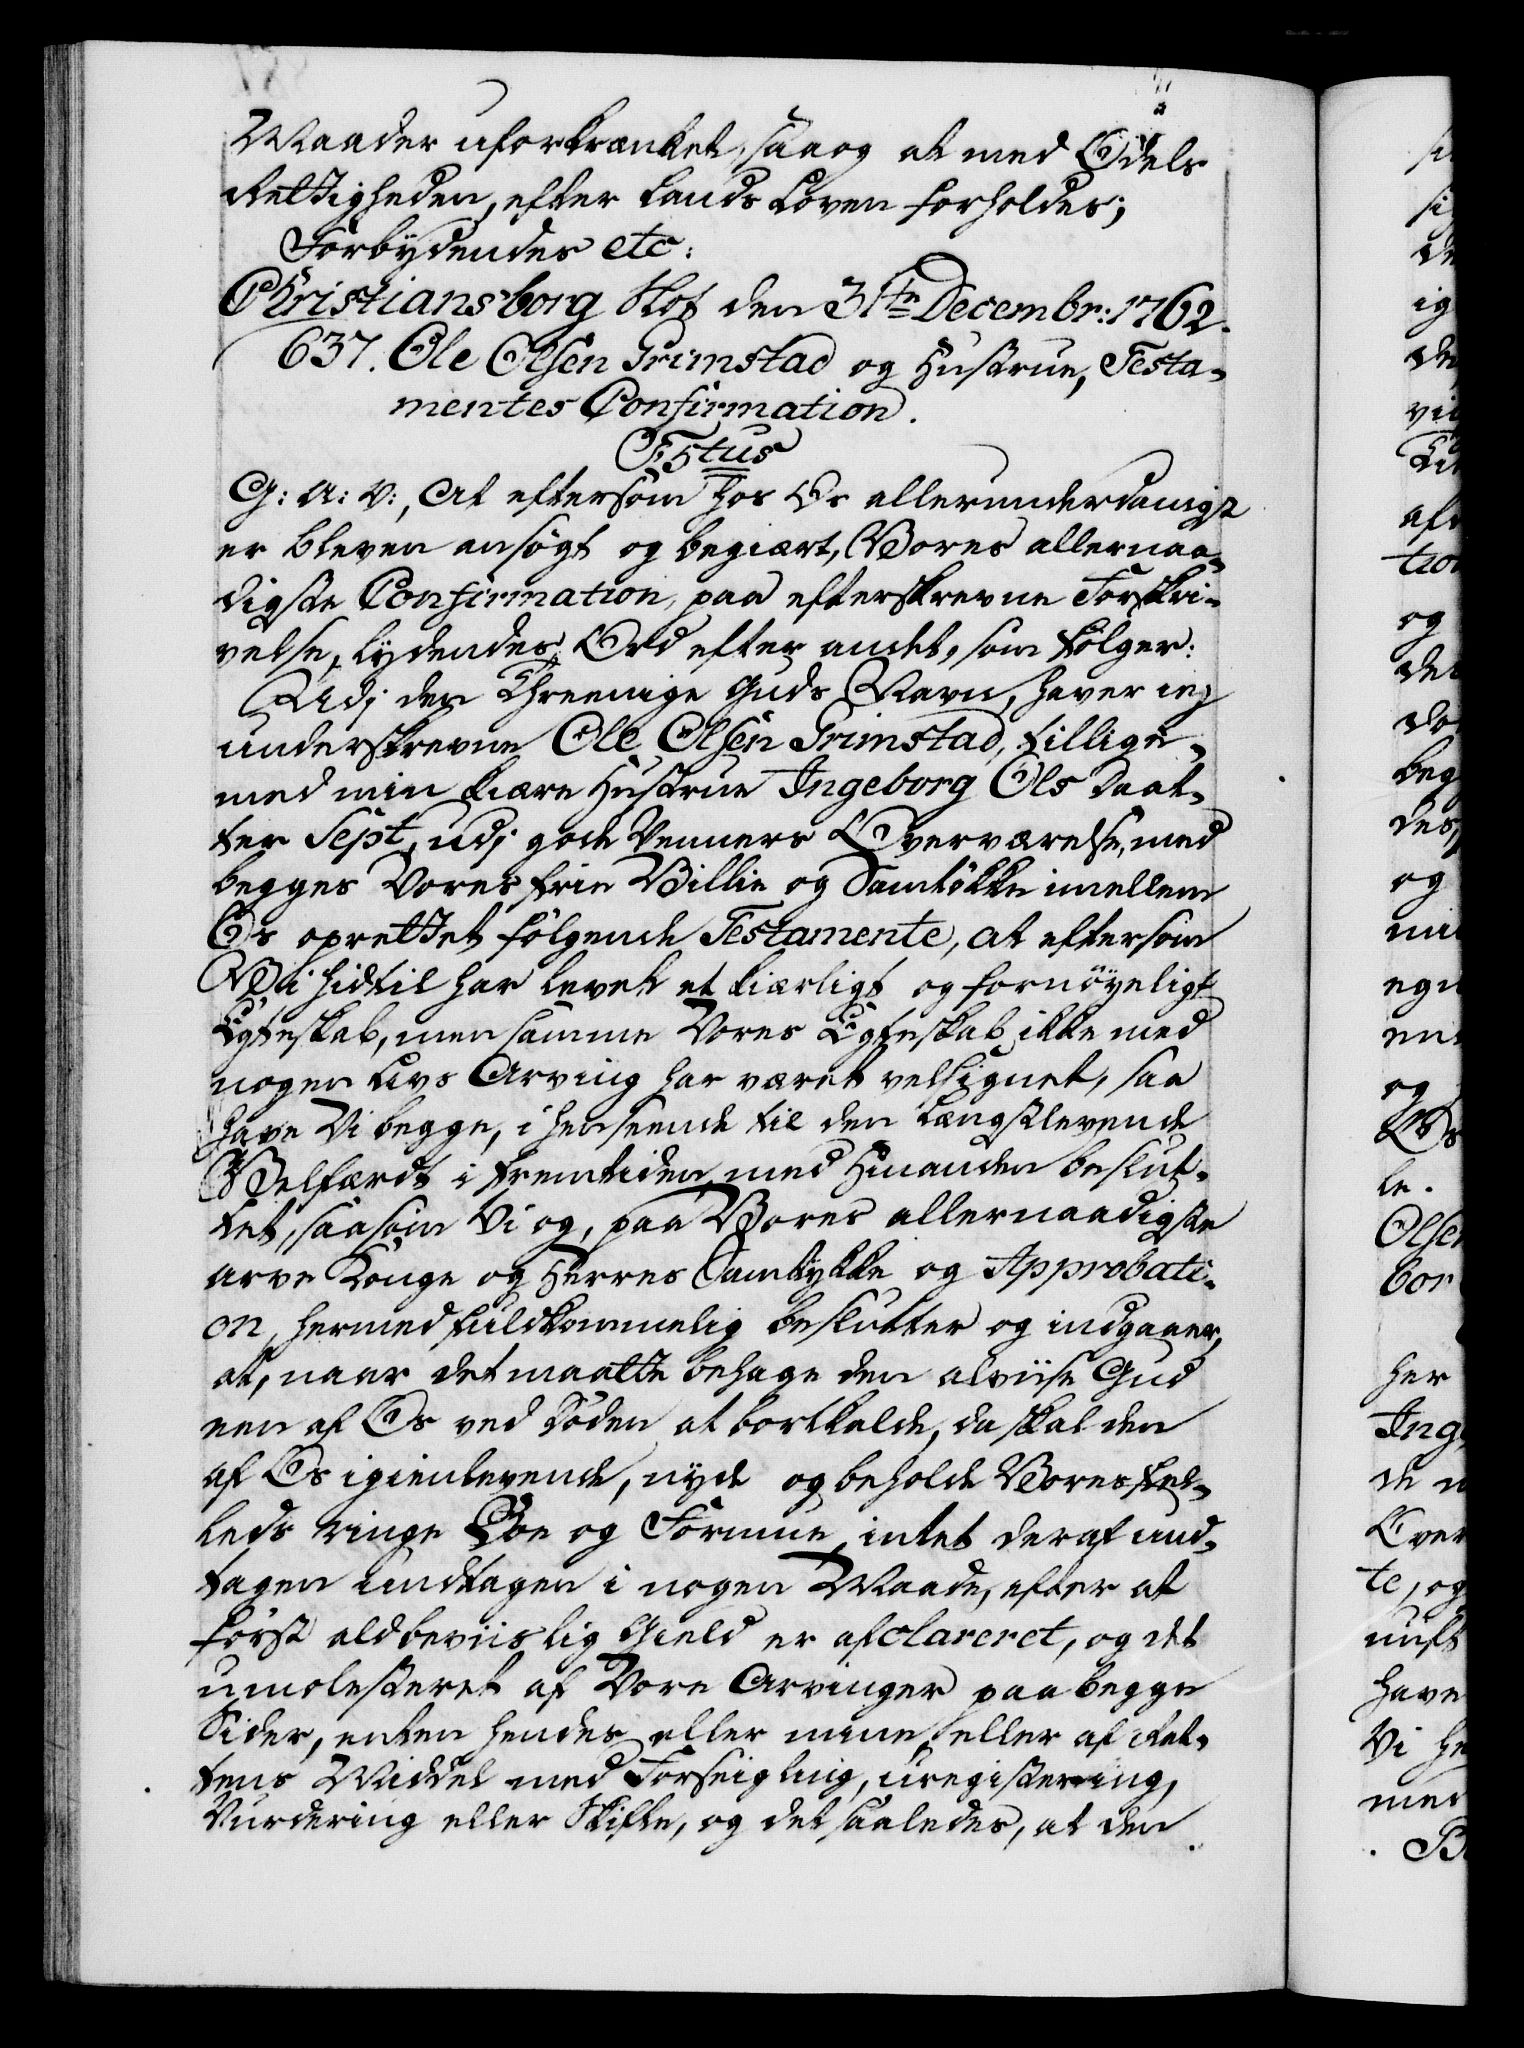 Maader uforkrænket, saa og at med Odels
Rettigheden, efter Lands Loven forholdes;
Forbydendes etc:
Christiansborg Slot den 31te Decembr: 1762.
637. Ole Olsen Grimstad og Hustrue, Testa-
mentes Confirmation.
F5tus
G: A: V:, At eftersom hos Os allerunderdanigst
er bleven ansøgt og begiært, Vores allernaa-
digste Confirmation, paa efterskrevne Forskri-
velse, lydendes Ord efter andet, som følger:
Udj den Threenige Guds Navn, haver ieg
underskrevne Ole Olsen Grimstad, tillige-
med min kiære Hustrue Ingeborg Ols Daat-
ter Sept, udj gode Venners Overværelse, med
begges Vores frie Villie og Samtøkke imellem
Os oprettet følgende Testamente, at eftersom
Vi hidtil har levet et kiærligt og fornøyeligt
Egteskab, men samme Vores Egteskab ikke med
nogen Livs Arving har været velsignet, saa
have Vi begge, i henseende til den Længstlevende
Velfærdt i fremtiden, med hinanden beslut-
tet, saasom Vi og, paa Vores allernaadigste
arve Konge og Herres Samtykke og Approbati-
on, hermed fuldkommelig beslutter og indgaaer,
at, naar det maatte behage den alviise Gud
een af Os ved Døden at bortkalde, da skal den
af Os igienlevende, nyde og beholde Vores fel-
leds ringe Boe og Formue, intet deraf und-
tagen undtagen i nogen Maade, efter at
først ald beviislig Gield er afclareret, og det
umolesteret af Vore Arvinger paa begge
Sider, enten hendes eller mine, eller af Ret-
tens Middel med Forseigling, Uregistering,
Vurdering eller Skifte, og det saaledes, at den